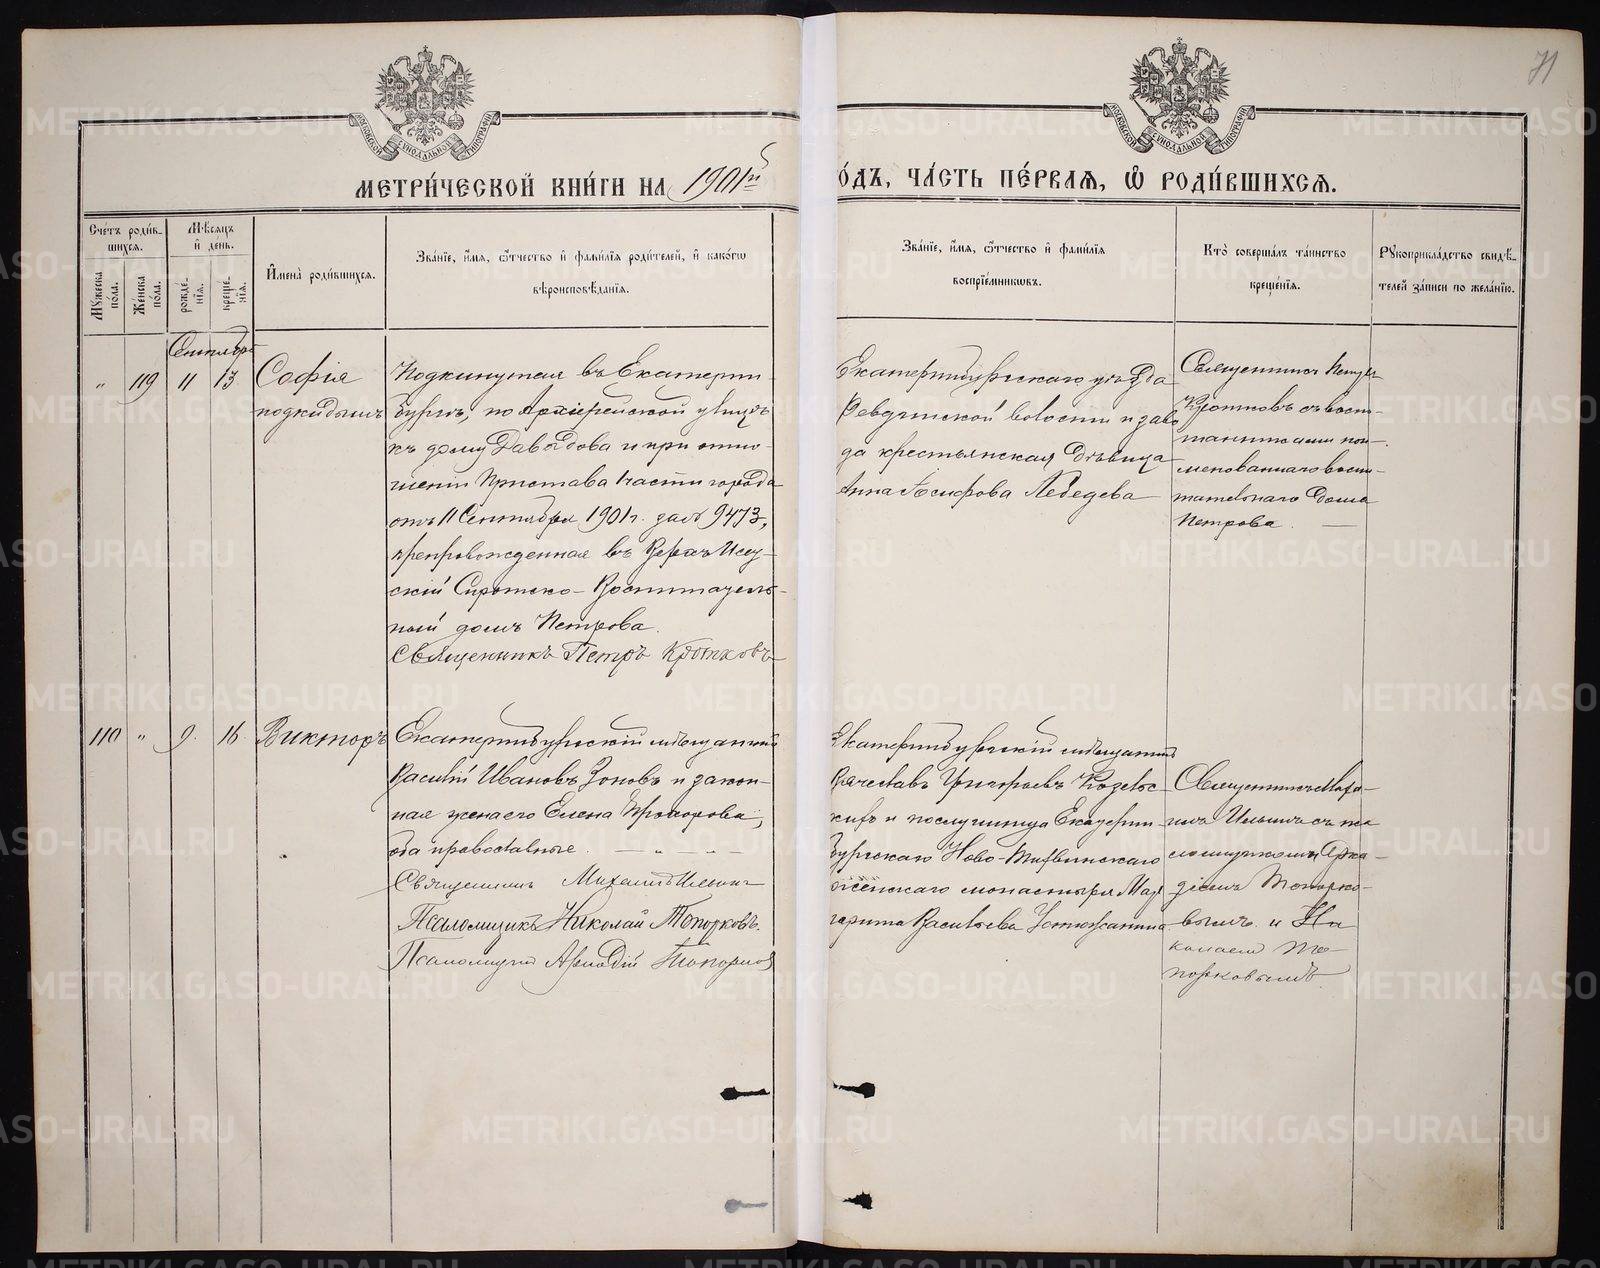 71
МЕТРИ́ЧЕСКОЙ КНИ́ГИ НА 1901й
ОДЪ, ЧА́СТЬ ПЕ́РВАЯ, Ѡ РОДИ́ВШИХСЯ.
Сче́тъ роди́в-
шихся.
Мѣ́сяцъ
и де́нь.
Му́жеска
по́ла.
Же́нска
по́ла.
рожде́-
нїя.
креще́-
нїя.
Имена̀ роди́вшихся.
Зва́нїе, и́мя, ѻ҆́тчество и фами́лїя роди́телей, и како́гѡ
вѣроисповѣ́данїя.
Зва́нїе, и́мя, ѻ҆́тчество и фами́лїя
воспрїе́мникѡвъ.
Кто̀ соверша́лъ та́инство
креще́нїя.
Рукоприкла́дство свидѣ́-
телей за́писи по жела́нїю.
Сентябрь
" 119 11 13
Софія
подкидышъ
Подкинутая въ Екатерин-
бургѣ, по Архіерейской улицѣ
къ дому Давыдова и при отно-
шеніи Пристава 1 части города
отъ 11 Сентября 1901 г. за № 9473,
препровожденная въ Верхъ Исет-
скій Сиротско-Воспитатель-
ный домъ Петрова.
Священникъ Петръ Кротковъ
Екатеринбургскаго уѣзда
Ревдинской волости и заво
да крестьянская дѣвица
Анна Іосифова Лебедева
Священникъ Петръ
Кротковъ съ воспи-
танниками пои-
менованнаго воспи-
тательнаго дома
Петрова.
110 " 9. 16.
Викторъ
Екатеринбургскій мѣщанинъ
Василій Ивановъ Зоновъ и закон-
ная жена его Елена Прохорова,
оба православные.
Священникъ Михаилъ Ильинъ
Псаломщикъ Николай Топорковъ.
Псаломщикъ Аркадій Топорковъ
Екатеринбургскій мѣщанинъ
Вячеславъ Григорьевъ
и послушница Екатерин-
бургскаго Ново-Тихвинскаго
женскаго монастыря Мар
гарита Васильева Устюжанина
Священникъ Миха-
илъ Ильинъ съ пса
ломщикомъ Арка-
діемъ Топорко-
вымъ и Ни
колаемъ То-
порковымъ.
METRIKI.GASO-URAL.RU